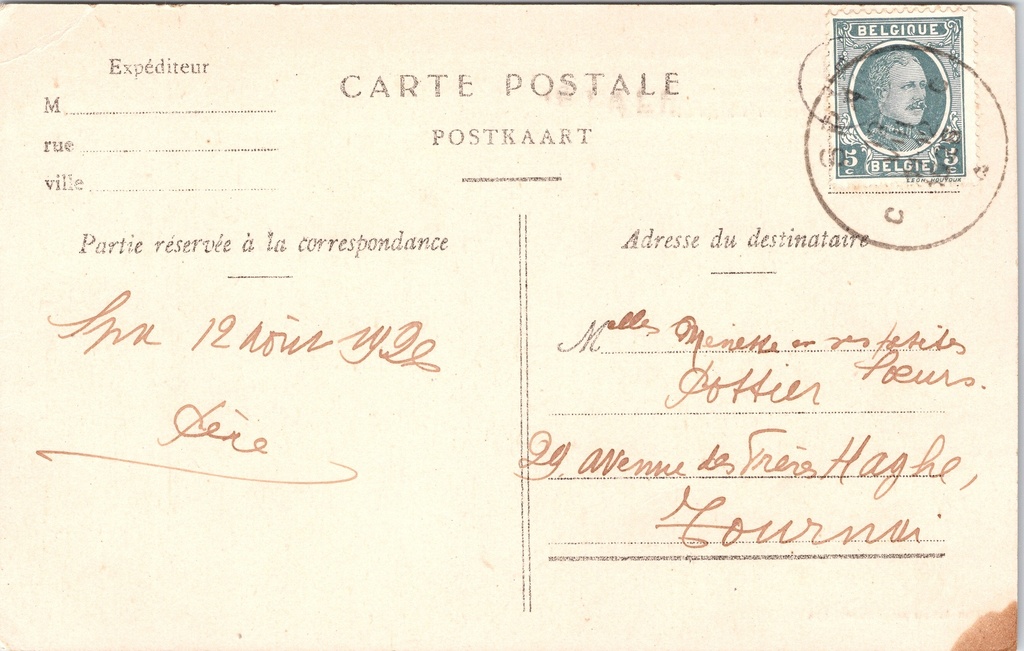 Expéditeur
M
rue
ville
CARTE POSTALE
POSTKAART
BELGIQUE
5 c BELGIË 5 c
Partie réservée à la correspondance
Adresse du destinataire
Spa 12 Août 192
Père
Melles Menette en ses petites
Sœurs.
Pottier
29, avenue des Frères Haghe,
Tournai